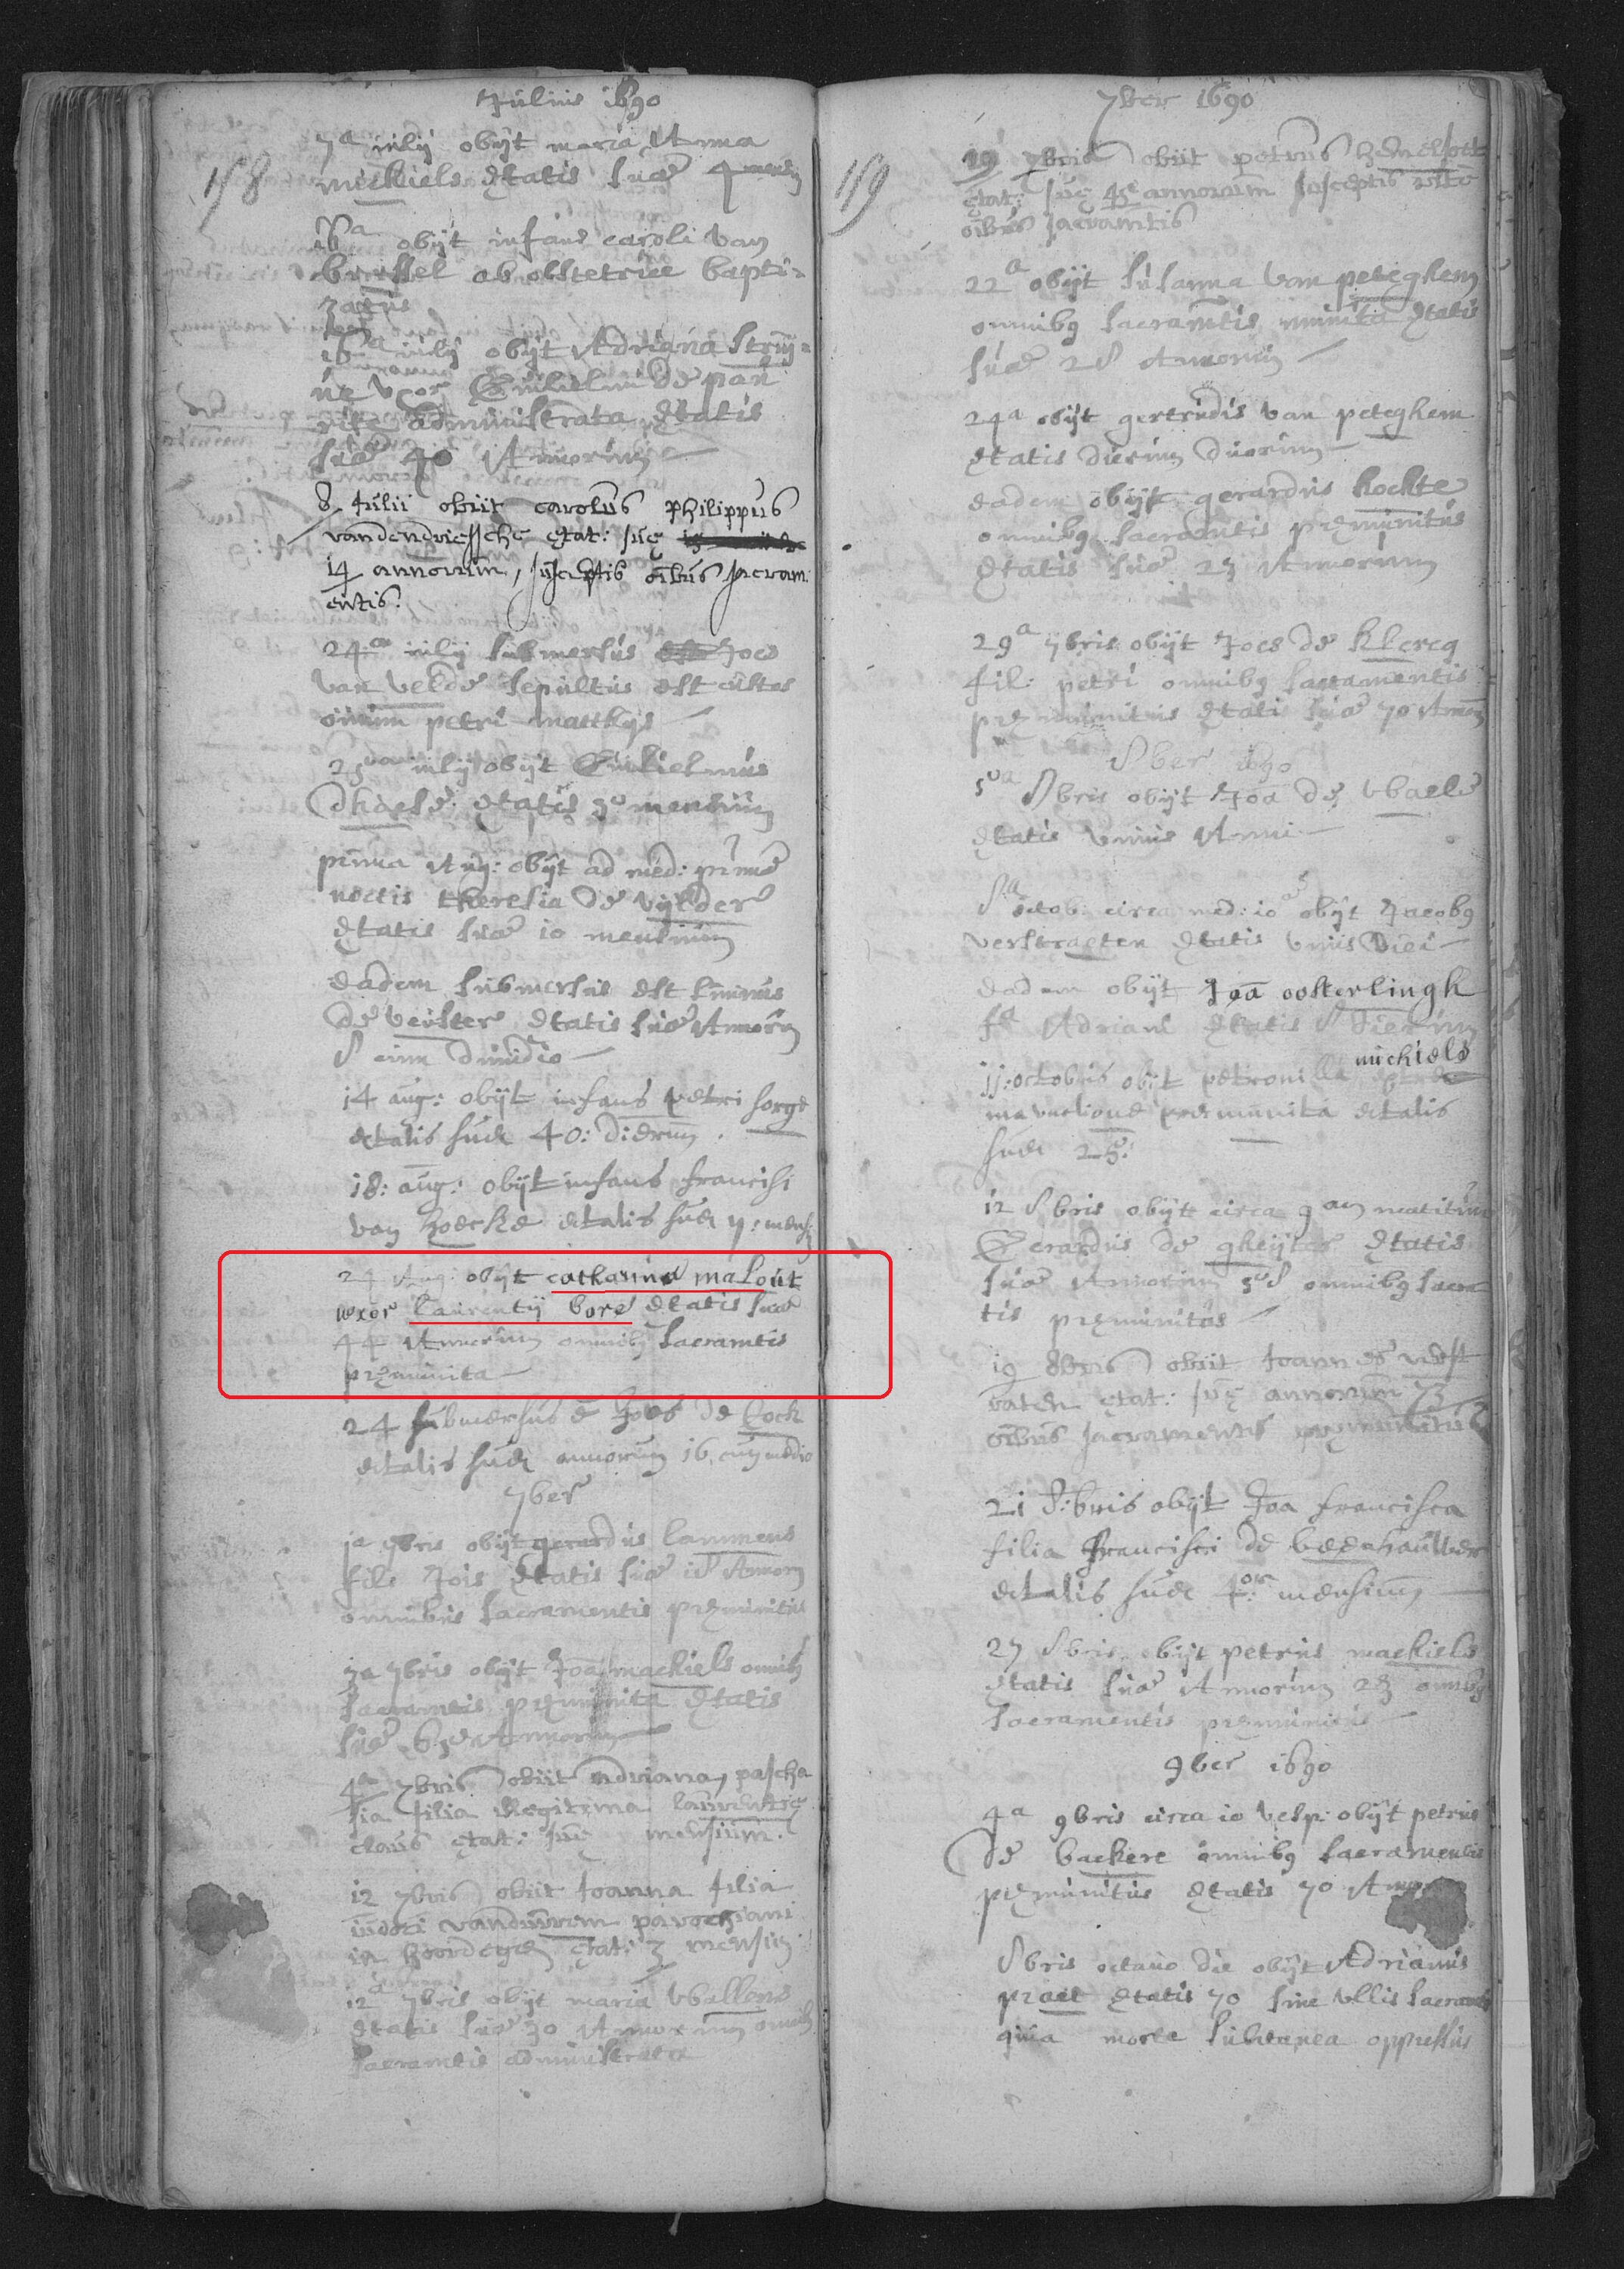 Julius 1690
158
7a iulij obijt maria Anna
michiels ętatis suae 4 mensiu
16a obijt infans caroli van
brussel ab obstetrice bapti=
zatus
16a iulij obijt Adriana
uxor Guilielmi de pau
rite administrata ętatis
suae 40 Annorum
8 Julii obiit carolus philippus
vandendriessche ętat: suę
14 annorum, susceptis oibus sacram
entis.
24a iulij submersus est Joes
van velde sepultus est
petri matthys
iulij obijt Guilielmus
Dhaese ętatis 3 mensium
prima Aug: obijt ad med: primae
noctis theresia de vylder
ętatis suae 10 mensium
eadem submersus est livinus
de veuster ętatis suae Annoru
8 cum dimidio
14 aug: obijt infans petri sorge
etatis suae 40: dierum.
18: aug: obijt infans francisi
van hoecke etatis suae mens:
24 Aug: obijt catharina malout
uxor laurentij bore ętatis suae
44 Annorum omnibq sacramtis
pręmunita
24 submersus e Joes de Cock
etatis suae annorum 16 cum medio
7ber
1a 7bris obijt gerardus lammens
fils Jois ętatis suae 18 Annoru
omnibus sacramentis pręmunitus
7bris obijt Joa mackiels omnib
sacramtis pręmunita ętatis
suae Annorum
4a 7bris obiit adriana pascha
sia filia legitima laurentii
claus ętat: suę mensium.
12 7bris obiit Joanna filia
iudoci vanduurem parochiani
in hoordegem ętat: 3 mensiu
12a 7bris obijt maria wallons
ętatis suae 30 Annorum omnib
sacramtis administrata
7ber 1690
159
19 7bris obiit petrus hemelsoet
ętat: suę 45 annorum susceptis rite
oibus sacramtis
22a obijt susanna van peteghem
omnibq sacramtis munita ętatis
suae 28 Annoru
24a obijt gertrudis van peteghem
ętatis dierum duorum
eadem obijt gerardus hockte
omnibq sacramtis pręmunitus
ętatis suae 25 Annorum
29a 7bris obijt Joes de klercq
fil: petri omnibq sacramentis
pręmunitus ętatis suae 70 Annoru
8ber 1690
5ta 8bris obijt Joa de wael
ętatis unius Anni
8a octob: circa med: 10 obijt Jacobq
verstraeten ętatis unius diei
eadem obijt Joa oosterlingh
fa Adriani ętatis 8 dierum
michiels
11: octobris obijt petronilla
praemunita etatis
suae 25:
12 8bris obijt circa 9am matituna
Gerardus de gheyter ętatis
suae Annorum 58 omnibq sacra
tis pręmunitus
19 8bris obiit Joannes vest
raten ętat: suę annorum 73
oibus sacramentis pręmunitus
21 8:bris obijt Joa francisca
filia francisci de beenhauwer
etatis suae 4or mensium
27 8bris obijt petrus mackiels
ętatis suae Annorum 23 omnibq
sacramentis pręmunitus
9ber 1690
4a 9bris circa 10 vesp: obijt petrus
de backere omnibq sacramentis
pręmunitus ętatis 70
8bris octavo die obijt Adrianus
praet ętatis 70 sine ullis sacramtis
quia morte subtanea oppressus